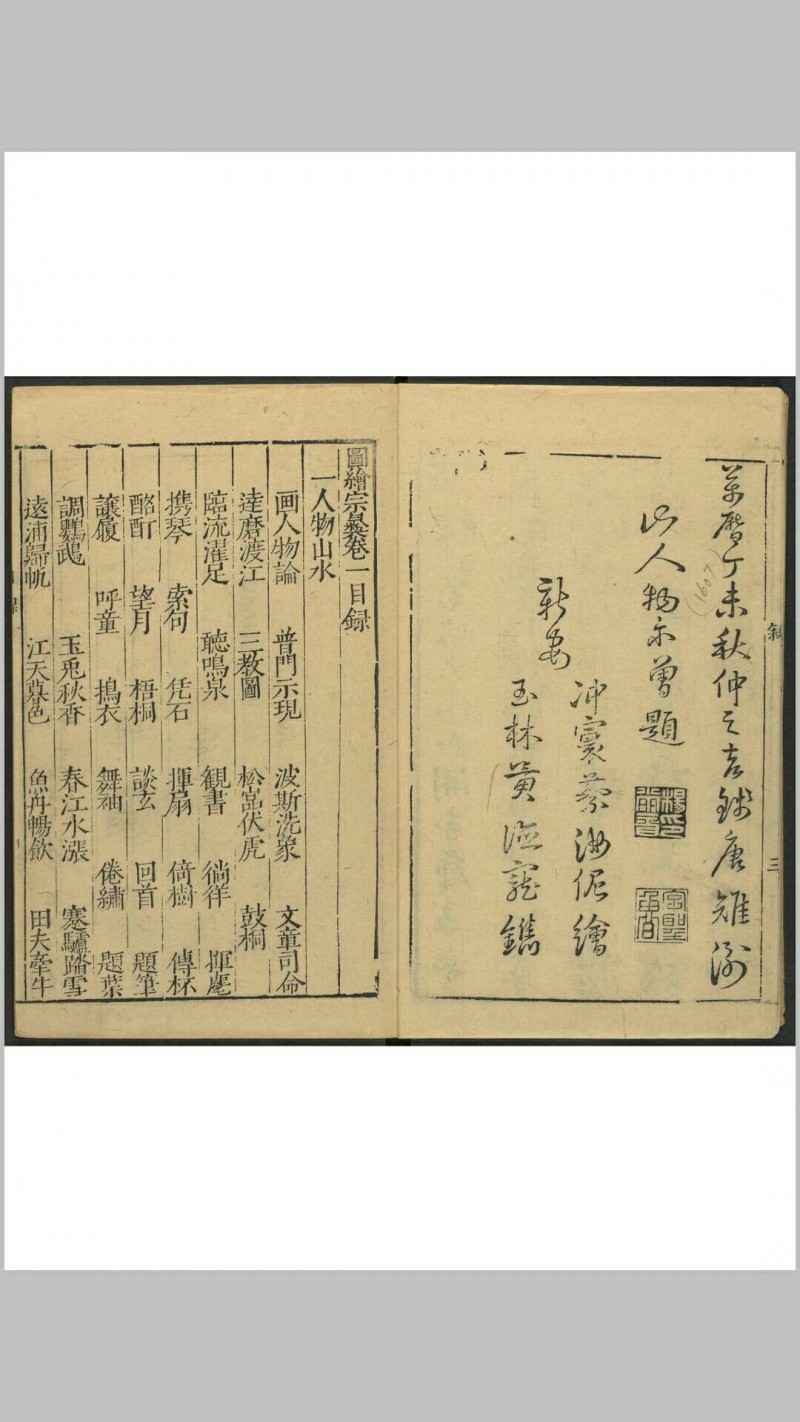 萬曆丁未秋仲之吉錢唐雉衡
山人楊尔曾題
(1607)
新安
冲寰蔡汝佐繪
玉林黃德寵鐫
叙
三
圖繪宗彛卷一目録
一人物山水
画人物論 普門示現 波斯洗象 文章司命
達磨渡江 三教圖 松峦伏虎 鼓桐
臨流濯足 聽鳴泉 観書 徜徉 揮麈
携琴 索句 凭石 揮扇 倚樹 傳杯
酩酊 望月 梧桐 談玄 回首 題筆
讓履 呼童 搗衣 舞袖 倦繡 題葉
調鸚鵡 玉兎秋香 春江水漲 寒驢踏雪
遠浦歸帆 江天暮色 魚舟暢飲 田夫牽牛